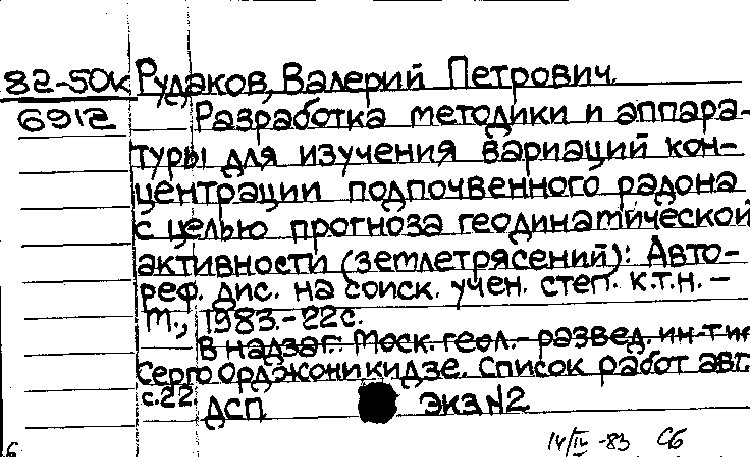 82-50к Рудаков, Валерий Петрович.
6912 Разработка методики и аппара-
туры для изучения вариаций кон-
центрации подпочвенного радона
с целью прогноза геодинамической
активности (землетрясений): Авто-
реф. дис. на соиск. учен. степ. к.т.н. –
М., 1983.-22с.
В надзаг.: Моск. геол.-развед. ин-т им
Серго Орджоникидзе. Список работ авт.
с.22
ДСП ЭКЗ N2
14/IV -83 Сб